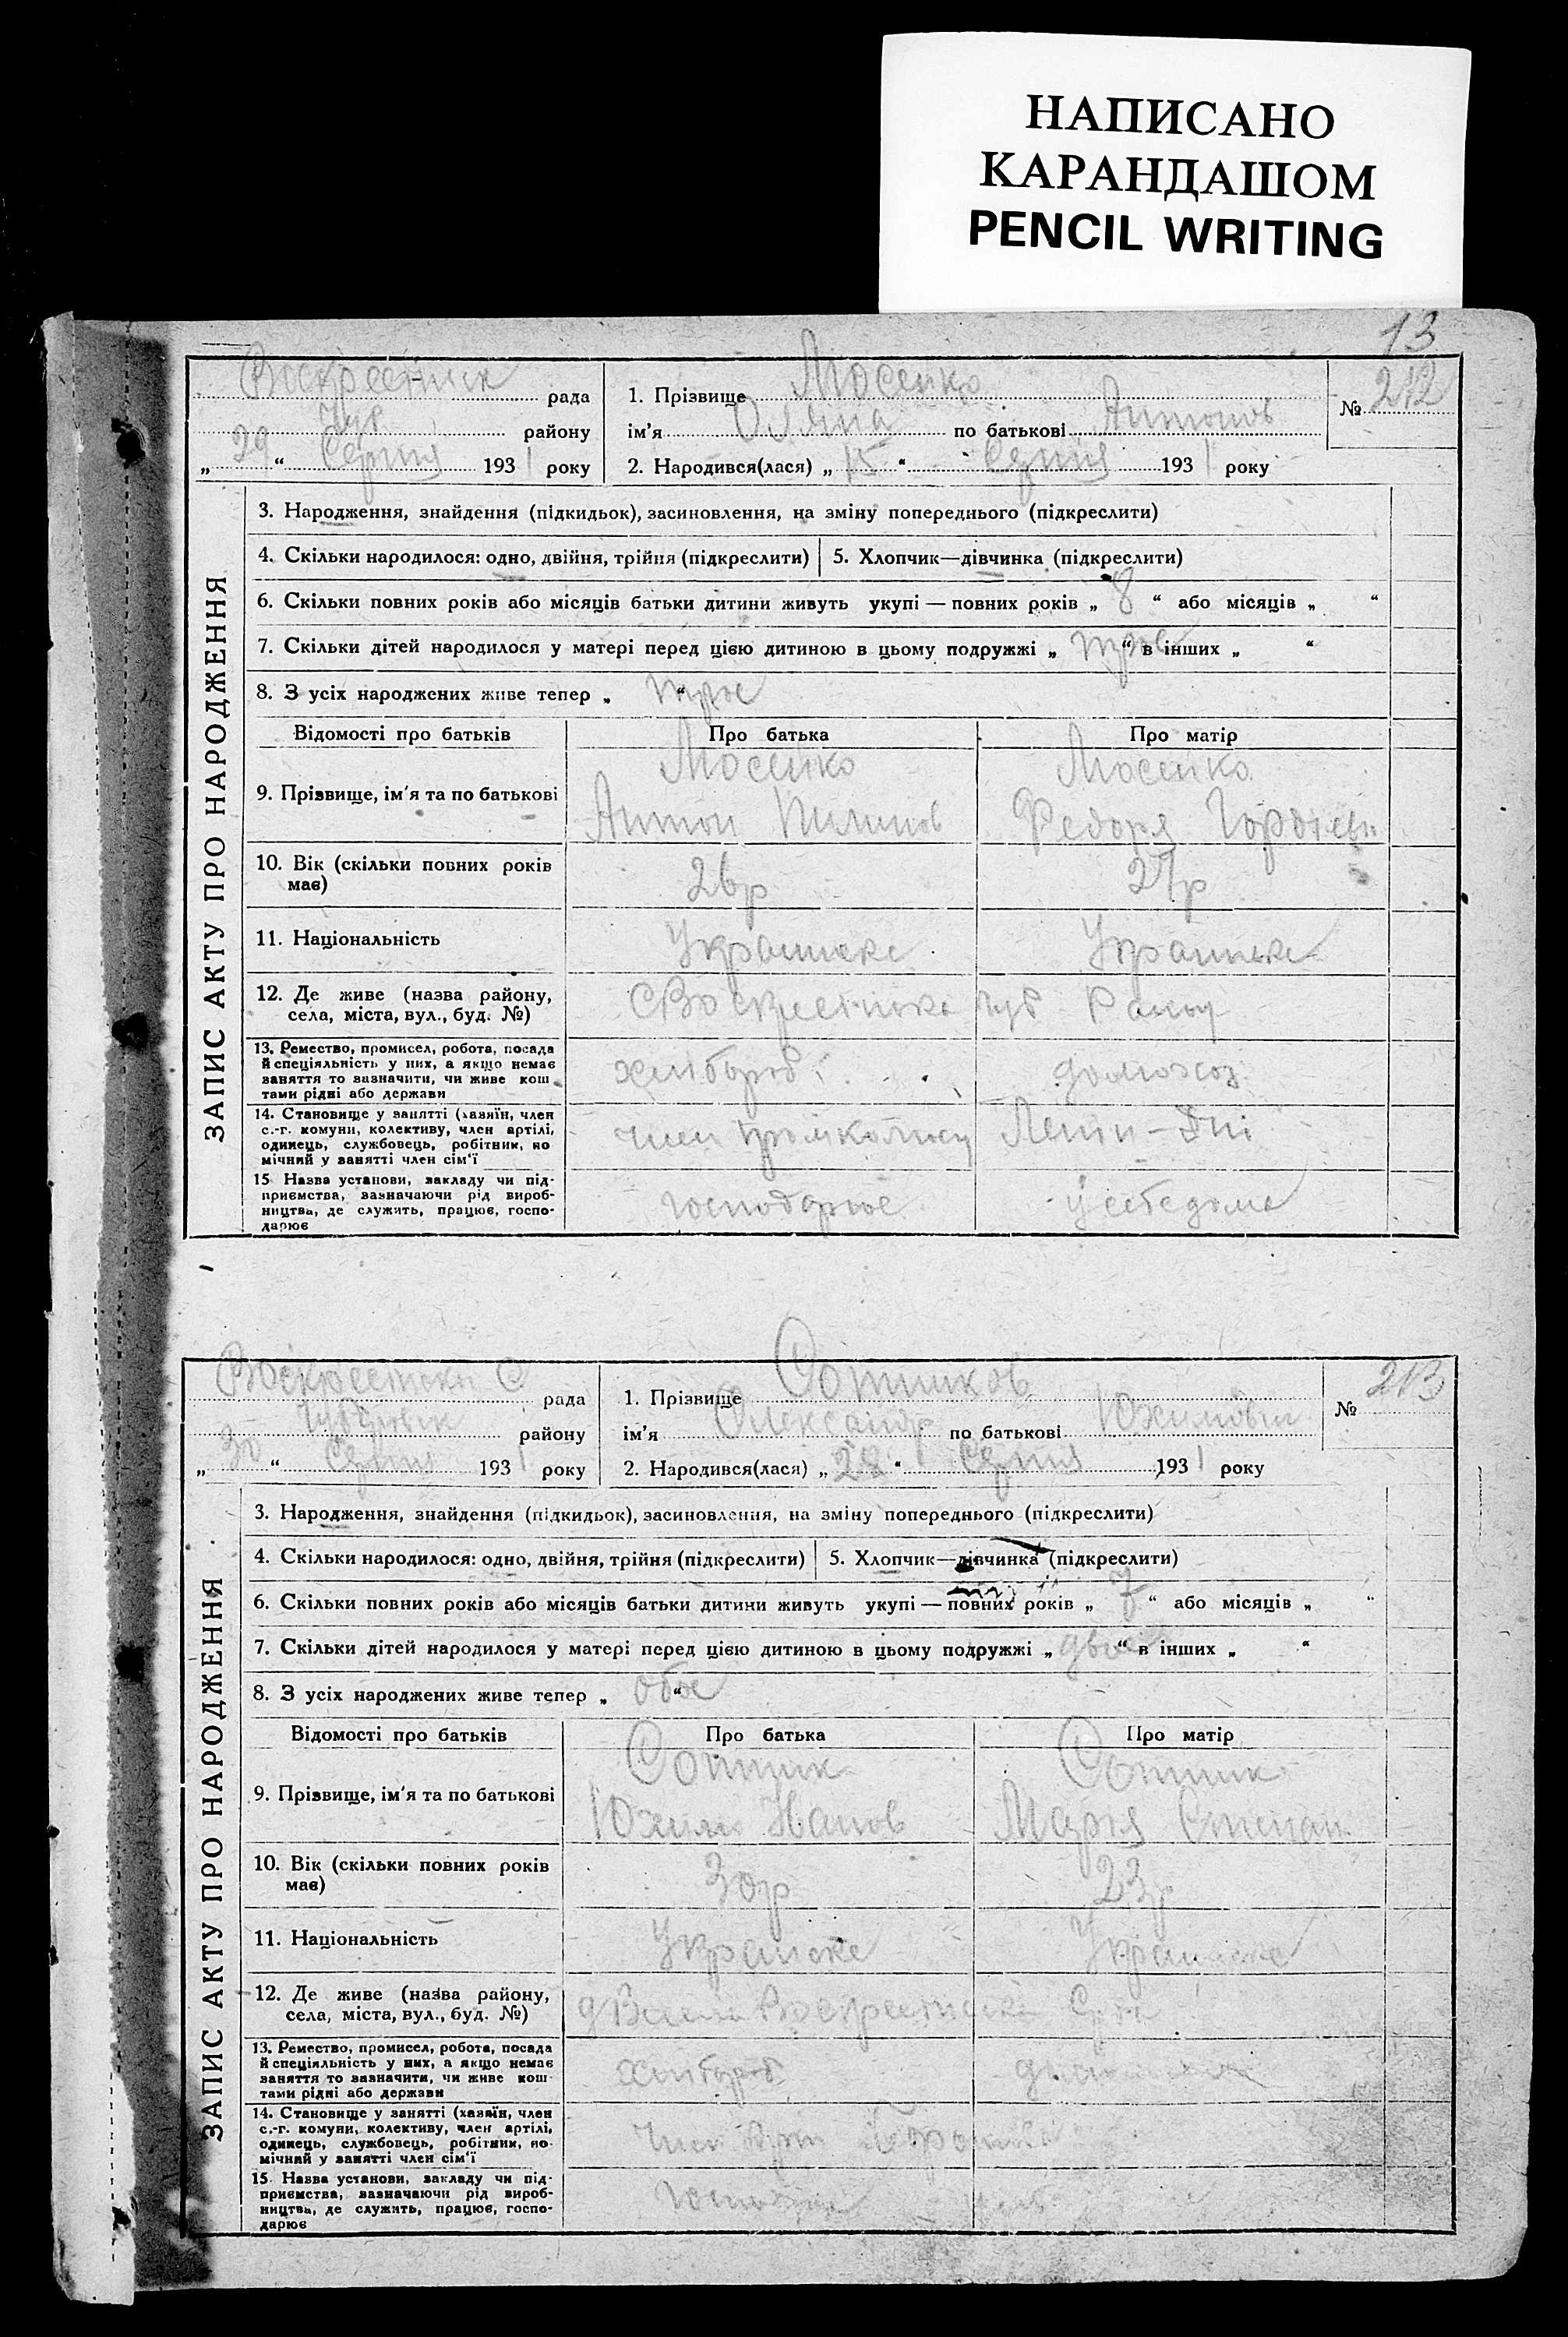 НАПИСАНО
КАРАНДАШОМ
PENCIL WRITING
13
рада
району
„ 29 “ Серпня 1931 року
1. Прізвище Мосенко
ім’я по батькові Антонов
2. Народився(лася) „ 15 “ Серпня 1931 року
№ 212
ЗАПИС АКТУ ПРО НАРОДЖЕННЯ
3. Народження, знайдення (підкидьок), засиновлення, на зміну попереднього (підкреслити)
4. Скільки народилося: одно, двійня, трійня (підкреслити) 5. Хлопчик—дівчинка (підкреслити)
6. Скільки повних років або місяців батьки дитини живуть укупі — повних років „ 8 “ або місяців „ “
7. Скільки дітей народилося у матері перед цією дитиною в цьому подружжі „ троє “ в інших „ “
8. З усіх народжених живе тепер „ троє “
Відомості про батьків Про батька Про матір
9. Прізвище, ім’я та по батькові
Мосенко Мосенко
Антон Федора
10. Вік (скільки повних років має)
26р 27р
11. Національність
12. Де живе (назва району,
села, міста, вул., буд. №)
13. Ремество, промисел, робота, посада
й спеціяльність у них, а якщо немає
заняття то зазначити, чи живе кош
тами рідні або держави
хлібороб
14. Становище у занятті (хазяїн, член
с.-г. комуни, колективу, член артілі,
одинець, службовець, робітник, по
мічний у занятті член сім’ї
член
15 Назва установи, закладу чи під-
приємства, зазначаючи рід вироб-
ництва, де служить, працює, госпо-
дарює
у себе дома
рада
району
„ 30 “ Серпня 1931 року
1. Прізвище Сотников
ім’я Олександр по батькові Юхимович
2. Народився(лася) „ 28 “ Серпня 1931 року
№ 213
ЗАПИС АКТУ ПРО НАРОДЖЕННЯ
3. Народження, знайдення (підкидьок), засиновлення, на зміну попереднього (підкреслити)
4. Скільки народилося: одно, двійня, трійня (підкреслити) 5. Хлопчик—дівчинка (підкреслити)
6. Скільки повних років або місяців батьки дитини живуть укупі — повних років „ 7 “ або місяців „ “
7. Скільки дітей народилося у матері перед цією дитиною в цьому подружжі „ двоє “ в інших „ “
8. З усіх народжених живе тепер „ обоє “
Відомості про батьків Про батька Про матір
9. Прізвище, ім’я та по батькові
Сотник Сотник
Юхим Іванов Марія Степан
10. Вік (скільки повних років має)
30р 23р
11. Національність
12. Де живе (назва району,
села, міста, вул., буд. №)
13. Ремество, промисел, робота, посада
й спеціяльність у них, а якщо немає
заняття то зазначити, чи живе кош-
тами рідні або держави
хлібороб
14. Становище у занятті (хазяїн, член
с.-г. комуни, колективу, член артілі,
одинець, службовець, робітник, по-
мічний у занятті член сім’ї
член
15 Назва установи, закладу чи під-
приємства, зазначаючи рід вироб-
ництва, де служить, працює, госпо-
дарює